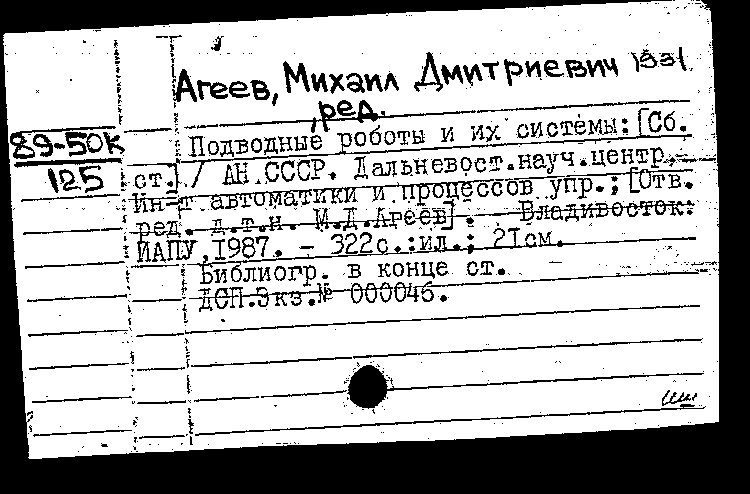 Агеев, Михаил Дмитриевич 1931
, ред.
89-50К
125
Подводные роботы и их системы: [Сб.
ст.] / АН СССР. Дальневост.науч.центр,
Ин-т автоматики и процессов упр.; [Отв.
ред. д.т.н. М.Д.Агеев]. - Владивосток:
ИАПУ,1987. - 322с.:ил.; 21см.
Библиогр. в конце ст.
ДСП.Экз.№ 000046.